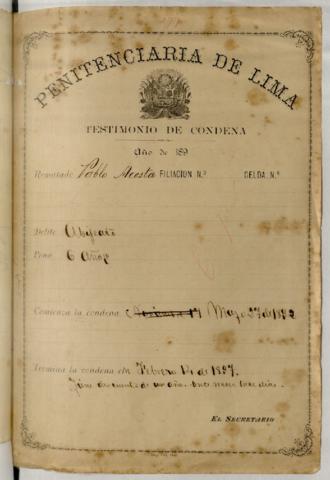 PENITENCIARIA DE LIMA
TESTIMONIO DE CONDENA
Año de 189
Rematado Pablo Acosta FILIACIÓN N.º CELDA N.º
Delito Abigeato
Pena 6 Años
Comienza la condena Mayo 27 de 1892
Termina la condena en Febrero 14 de 1897.
descuento de un año tres meses trece días.
EL SECRETARIO